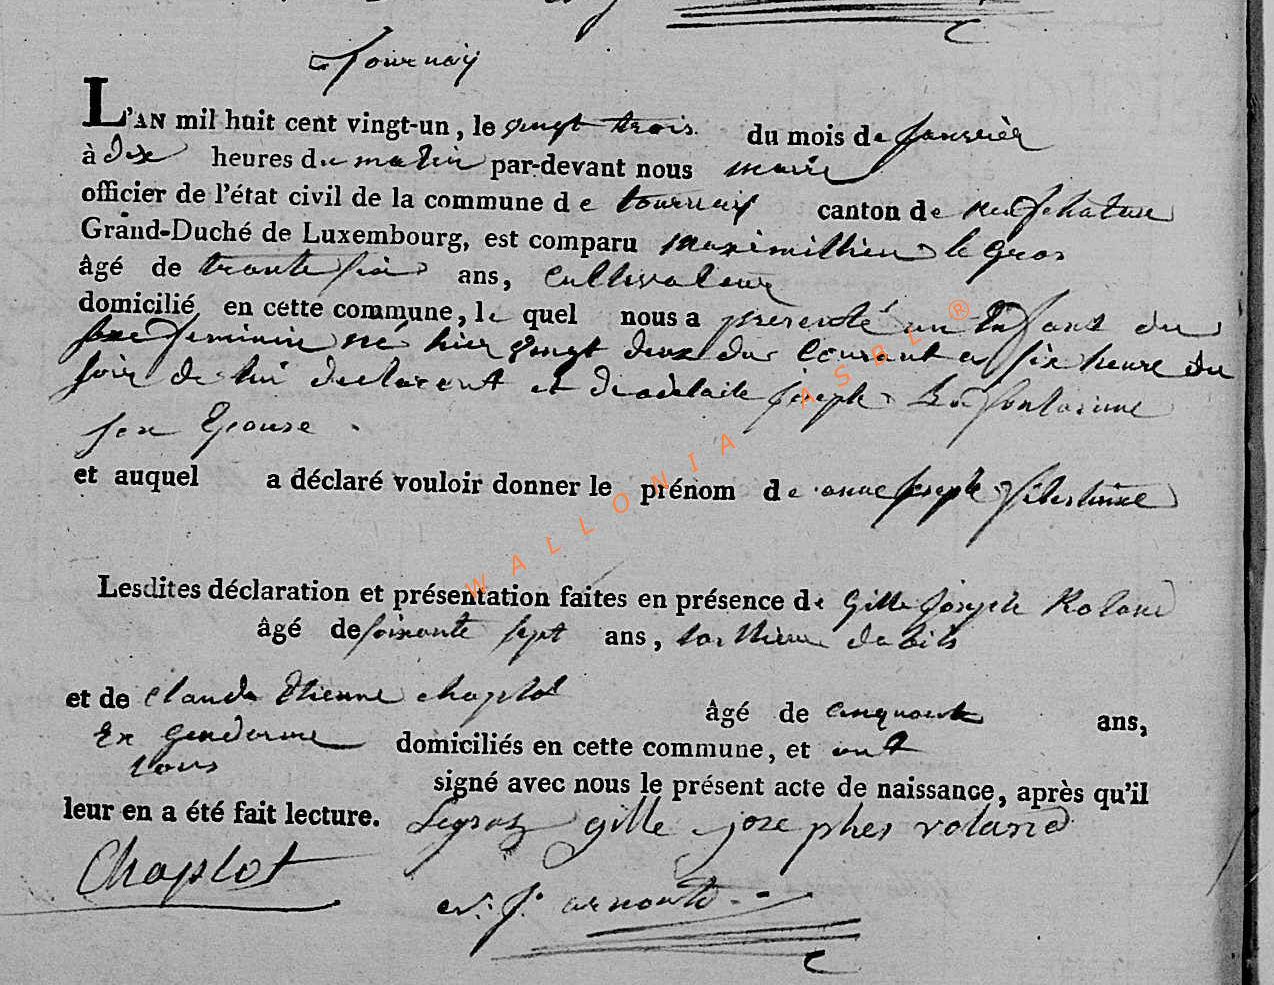 Tournay
L'AN mil huit cent vingt-un, le vingt trois du mois de Janvier
à dix heures du matin par-devant nous maire
officier de l'état civil de la commune de tournay canton de neufchateau
Grand-Duché de Luxembourg, est comparu maximillien le gros
âgé de trante six ans, cultivateur
domicilié en cette commune, le quel nous a presenté un Enfant du
sexe feminin né hier vingt deux du courant a six heure du
soir de lui declarent et de adelaide joseph La fontainne
son Epouse.
et auquel a déclaré vouloir donner le prénom de anne joseph
Lesdites déclaration et présentation faites en présence de Gille Joseph Roland
âgé de soixante sept ans, d'abits
et de Claude Etienne chaplot âgé de cinquante ans,
Ex gendarme domiciliés en cette commune, et ont
tous signé avec nous le présent acte de naissance, après qu'il
leur en a été fait lecture. Legros gille josephes roland
Chaplot
j. arnould
WALLONIA ASBL ®